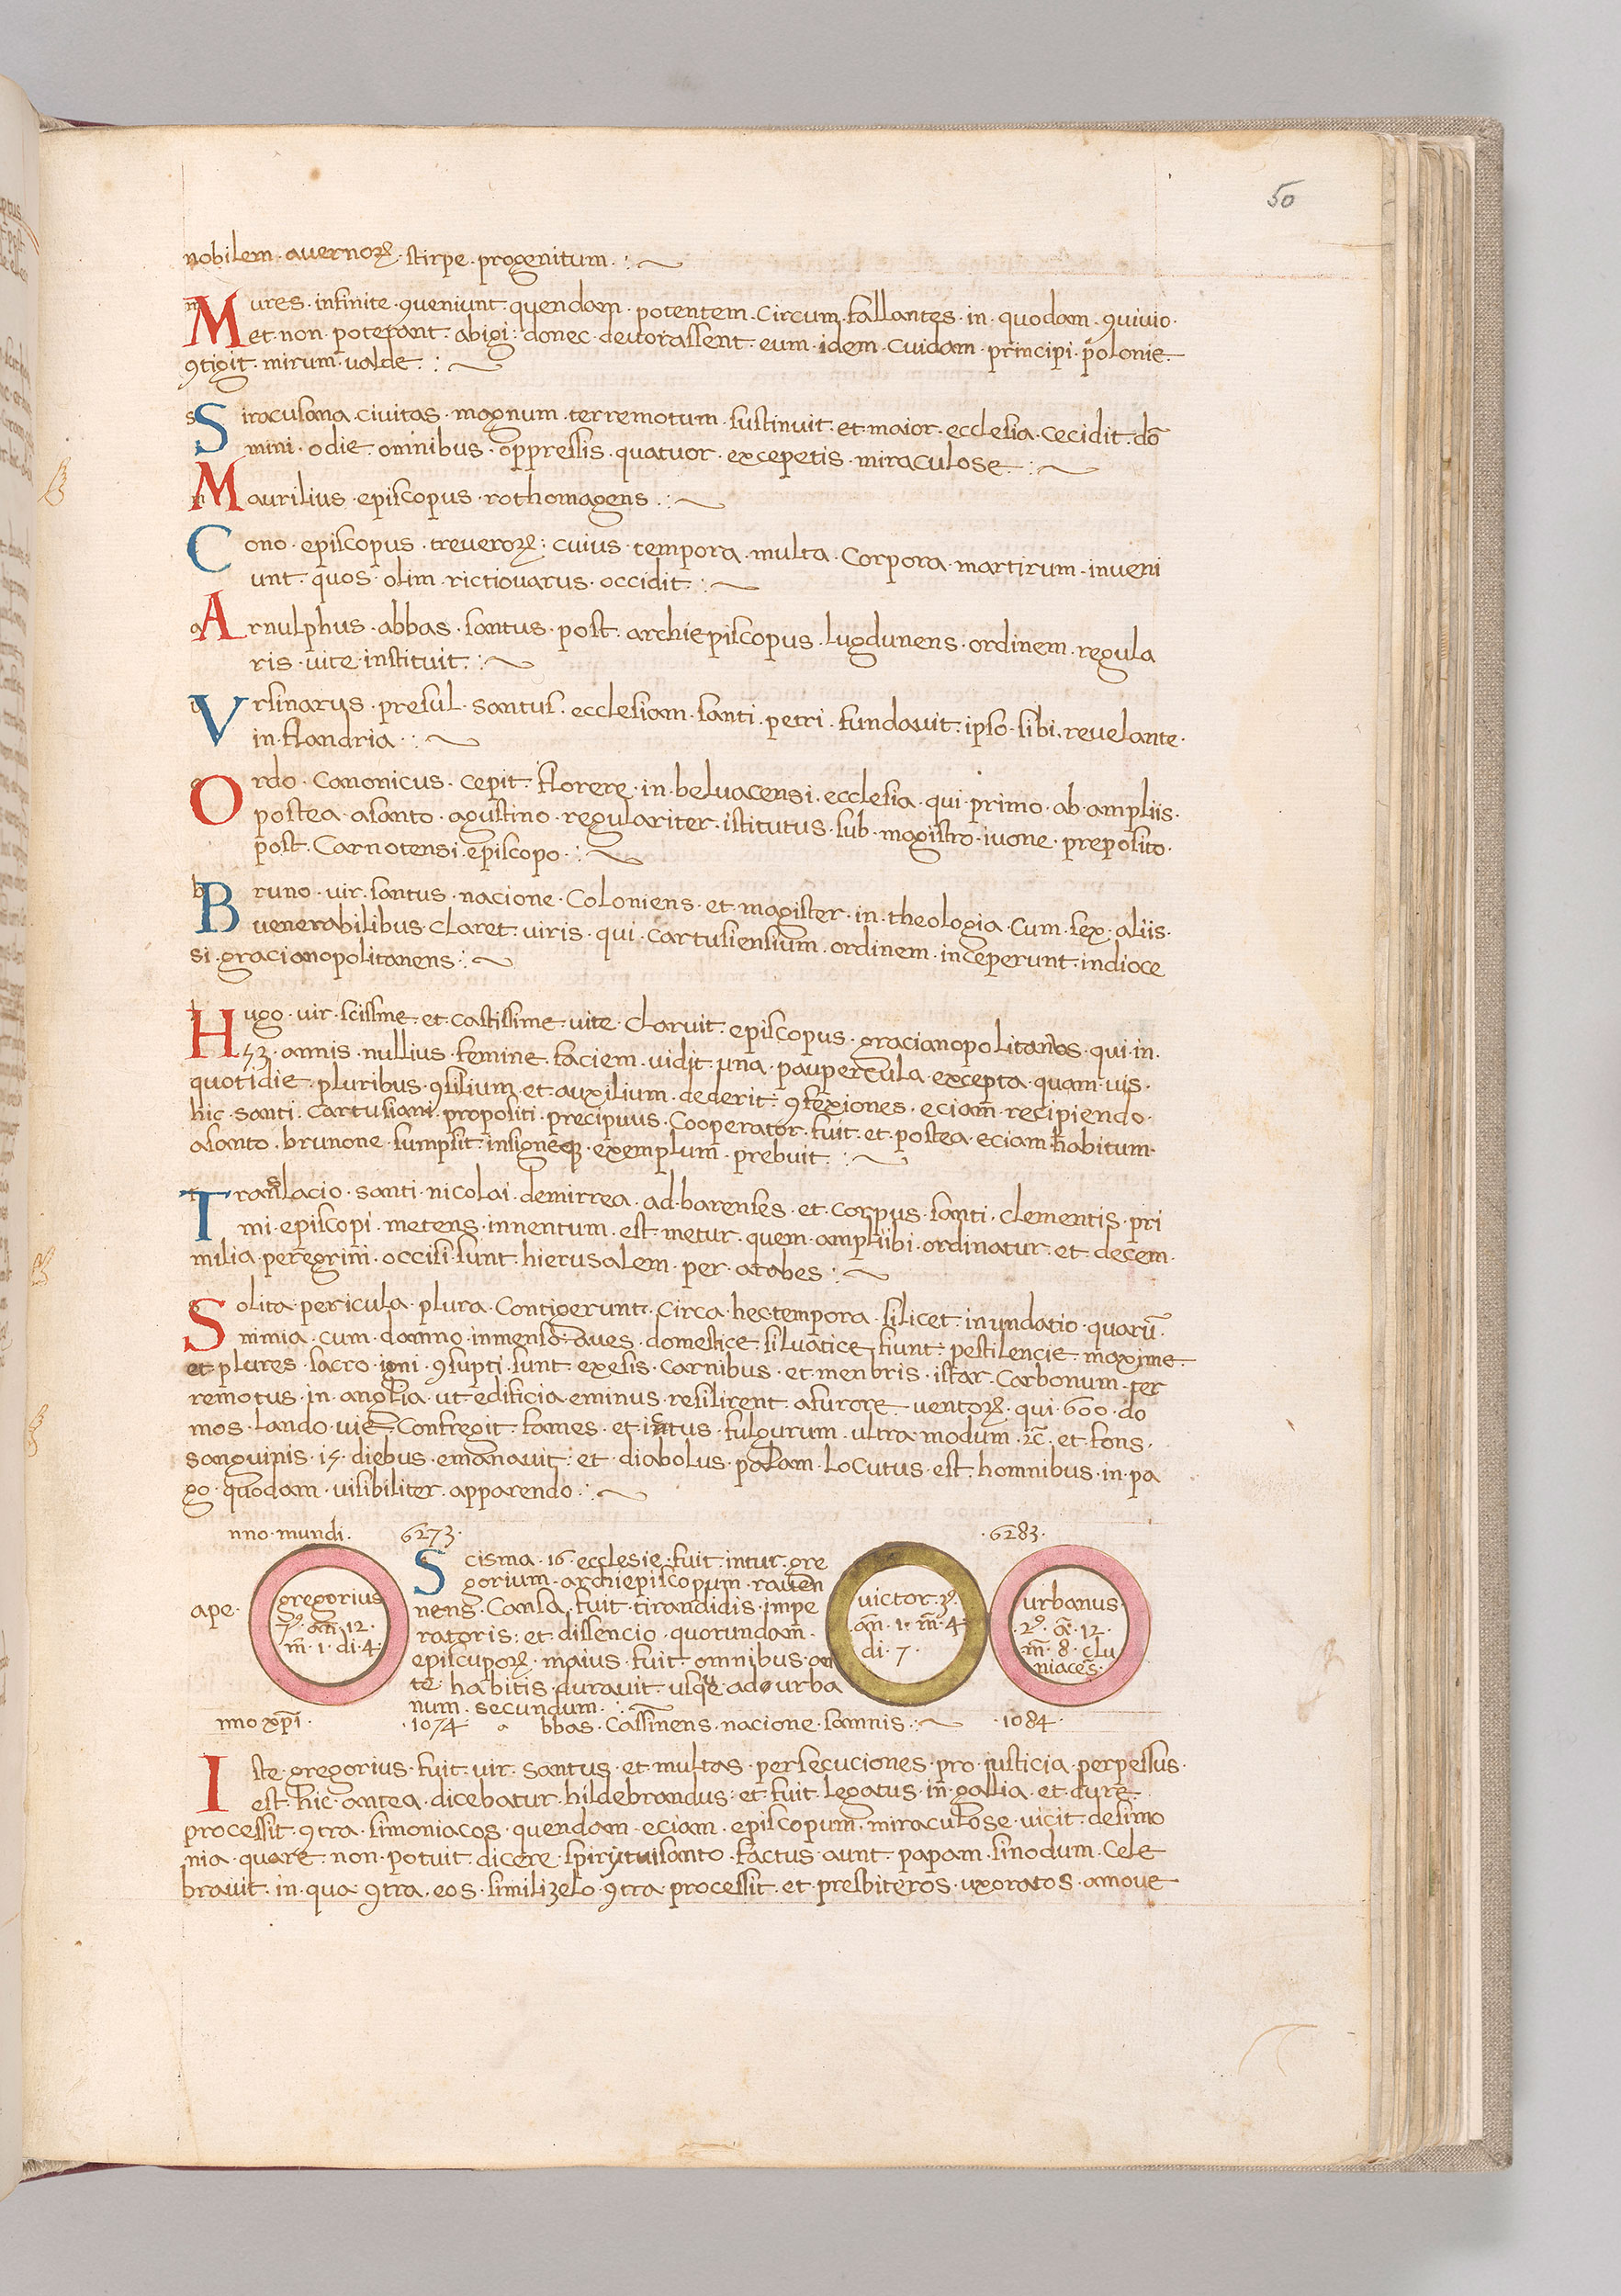 50
nobilem · avernoꝝ · stirpe · progenitum ·
Mures · infinite · ꝯveniunt · quendam · potentem · circum · fallantes · in · quodam · ꝯvivio ·
et · non · poterant · abigi · donec · devorassent · eum · idem · cuidam · principi · polonie ·
ꝯtigit · mirum · valde ·
Siracusana · civitas · magnum · terremotum · sustinuit · et · maior · ecclesia · cecidit · dō
mini · odie · omnibus · oppressis · quatuor · excepetis · miraculose ·
Maurilius · episcopus · rothomagens ·
Cono · episcopus · treveroꝝ · cuius · tempora · multa · corpora · martirum · inveni
unt · quos · olim · rictiovarus · occidit ·
Arnulphus · abbas · santus · post · archiepiscopus · lugdunens · ordinem · regula
ris · vite · instituit ·
Vrsinarus · presul · santus · ecclesiam · santi · petri · fundavit · ipso · sibi · revelante ·
in · flandria ·
Ordo · canonicus · cepit · florere · in · belvacensi · ecclesia · qui · primo · ab · ampliis ·
postea · asanto · agustino · regulariter · istitutus · sub · magistro · ivone · preposito ·
post · Carnotensi · episcopo ·
Bruno · vir · santus · nacione · Coloniens · et · magister · in · theologia · cum · sex · aliis ·
venerabilibus · claret · viris · qui · cartusiensium · ordinem · inceperunt · indioce
si · gracianopolitanens ·
Hugo · vir · scissime · et · castissime · vite · claruit · episcopus · gracianopolitanus · qui · in ·
53 · annis · nullius · femine · faciem · vidit · una · paupercula · excepta · quam · vis ·
quotidie · pluribus · ꝯsilium · et · auxilium · dederit · ꝯfexiones · eciam · recipiendo ·
hic · santi · cartusiani · propositi · precipuus · cooperator · fuit · et · postea · eciam · habitum ·
asanto · brunone · sumpsit · insigneqꝫ · exemplum · prebuit ·
Translacio · santi · nicolai · demirrea · ad · barenses · et · corpus · santi · clementis · pri
mi · episcopi · metens · innentum · est · metur · quem · ampliibi · ordinatur · et · decem ·
milia · peregrini · occisi · sunt · hierusalem · per · arabes ·
Solita · pericula · plura · contigerunt · circa · hectempora · silicet · inundatio · quarū ·
nimia · cum · damno · inmenso · aves · domestice · silvatice · fiunt · pestilencie · maxime ·
et · plures · sacro · igni · ꝯsupti · sunt · exesis · carnibus · et · menbris · istar · carbonum · ter
remotus · in · anglia · ut · edificia · eminus · resilirent · afurore · ventoꝝ · qui · 600 · do
mos · lando · vie · confregit · fames · et · ictus · fulgurum · ultra · modum · ⁊c̄ · et · fons ·
sanguinis · 15 · diebus · emanavit · et · diabolus · palam · locutus · est · homnibus · in · pa
go · quodam · visibiliter · apparendo ·
nno · mundi · 6273 · 6283 ·
ape ·
gregorius
7ꝰ · an̄ · 12 ·
m̄ · 1 · di · 4 ·
Scisma · 16 · ecclesie · fuit · intur · gre
gorium · archiepiscopum · raven
nens · Cansa · fuit · tirandidis · impe
ratoris · et · dissencio · quorundam ·
episcuporꝝ · maius · fuit · omnibus · an
te · habitis · duravit · usque · ad · urba
num · secundum ·
victor · 3ꝰ ·
an̄ · 1 · m̄ · 4 ·
di · 7 ·
urbanus ·
2ꝰ · ā · 12 ·
m̄ · 8 · clu
niacēs ·
nno xp̄i · 1074 · a bbas · cassinens · nacione · samnis · 1084 ·
Iste · gregorius · fuit · vir · santus · et · multas · persecuciones · pro · iusticia · perpessus ·
est · hic · antea · dicebatur · hildebrandus · et · fuit · legatus · in · gallia · et · dure ·
processit · ꝯtra · simoniacos · quendam · eciam · episcopum · miraculose · vicit · desimo
nia · quare · non · potuit · dicere · spirytuisanto · factus · aunt · papam · sinodum · cele
bravit · in · qua · ꝯtra · eos · similizelo · ꝯtra · processit · et · presbiteros · uxoratos · amove